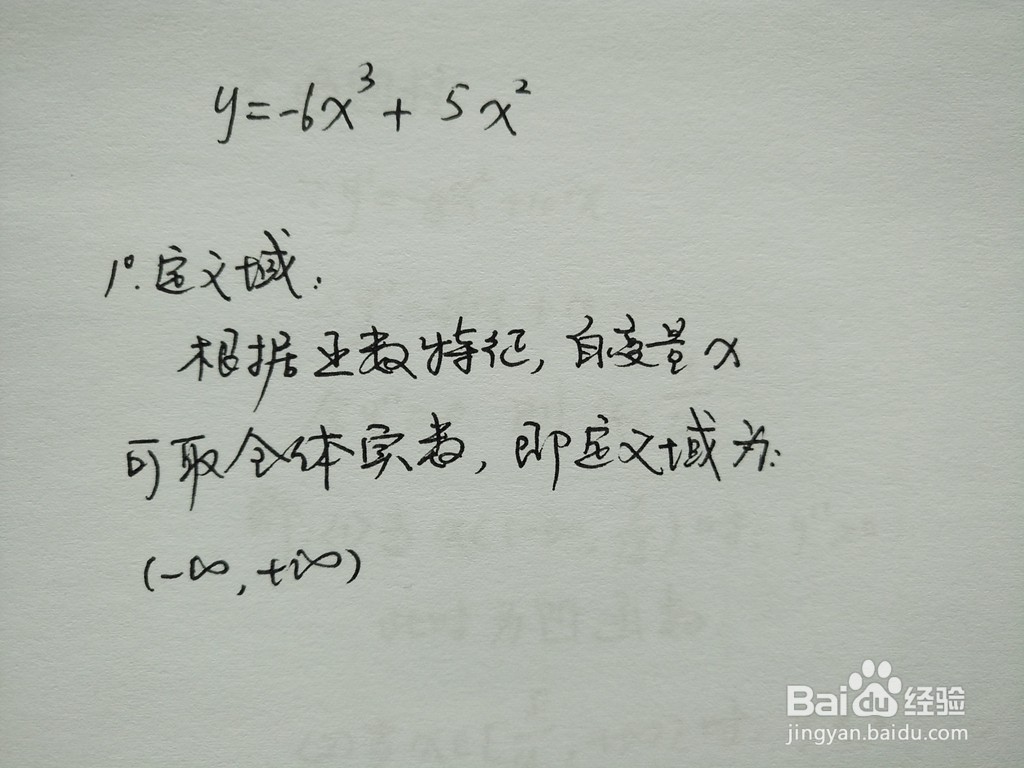 y=-6x³+5x²
1°.定义域:
根据函数特征,自变量x
可取全体实数,即定义域为:
(-∞,+∞)
Baidu经验
jingyan.baidu.com